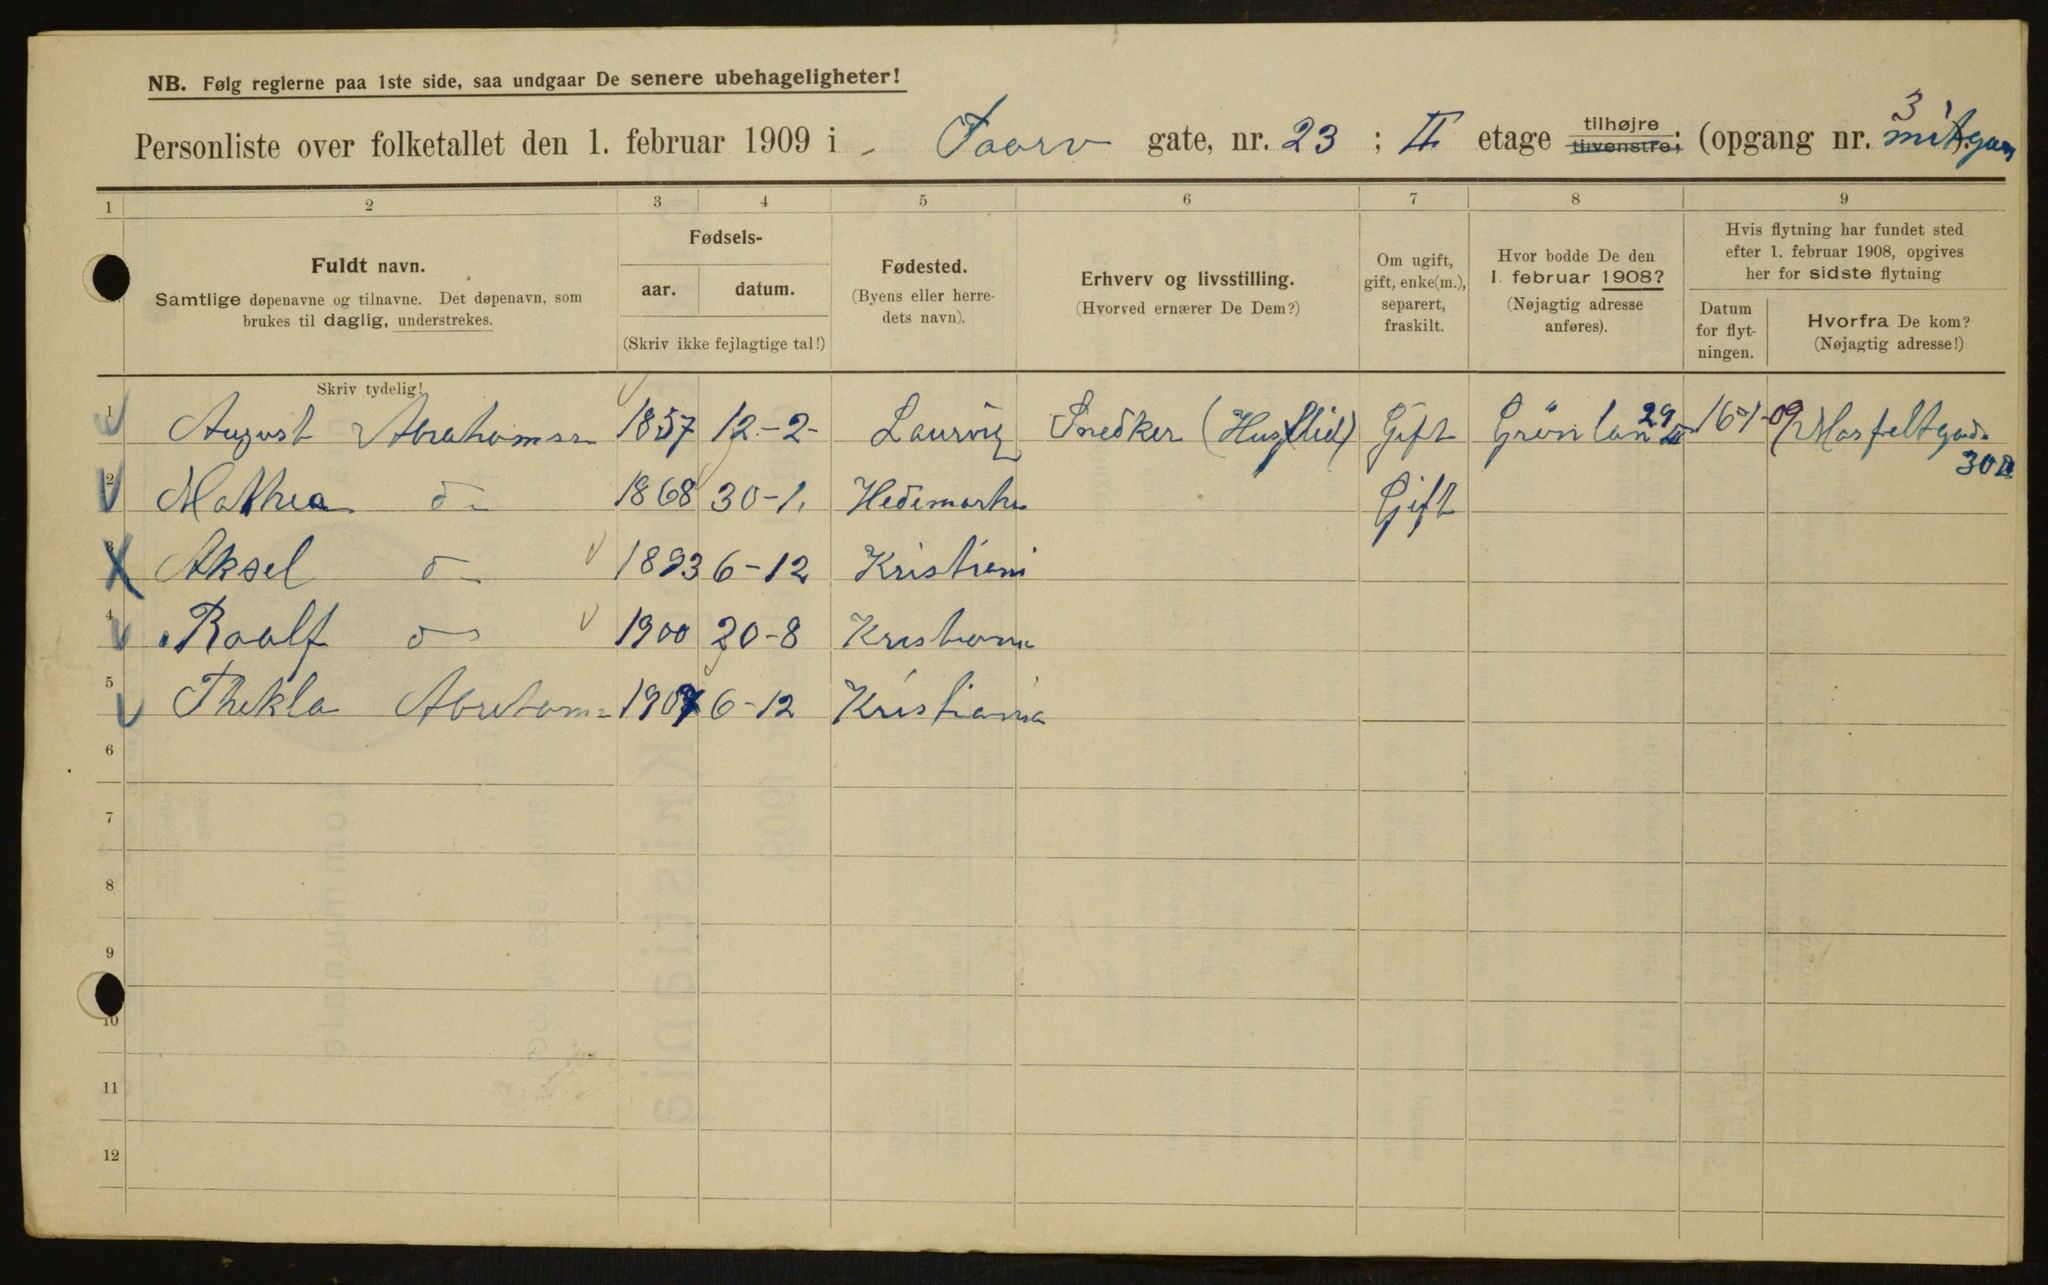 NB. Følg reglerne paa 1ste side, saa undgaar De senere ubehageligheter!
Personliste over folketallet den 1. februar 1909 i Taarv gate, nr. 23; II etage tilhøjre tilvenstre; (opgang nr. 3
1 2 3 4 5 6 7 8 9
Fuldt navn.
Samtlige døpenavne og tilnavne. Det døpenavn, som
brukes til daglig, understrekes.
Fødsels-
aar. datum.
(Skriv ikke fejlagtige tal!)
Fødested.
(Byens eller herre-
dets navn).
Erhverv og livsstilling.
(Hvorved ernærer De Dem?)
Om ugift,
gift, enke(m.),
separert,
fraskilt.
Hvor bodde De den
1. februar 1908?
(Nøjagtig adresse
anføres).
Hvis flytning har fundet sted
efter 1. februar 1908, opgives
her for sidste flytning
Datum
for flyt-
ningen.
Hvorfra De kom?
(Nøjagtig adresse!)
Skriv tydelig!
1 August Abrahamsen 1857 12-2- Laurvig Snedker (Husflid) Gift Grönlan 29 16-1-09 Marfeltgad. 30 II
2 Mathea do 1868 30-1. Hedemarken Gift
3 Aksel do 1893 6-12 Kristiani
4 Roalf do 1900 20-8 Kristiania
5 Thekla Abraham= 1907 6-12 Kristiania
6
7
8
9
10
11
12